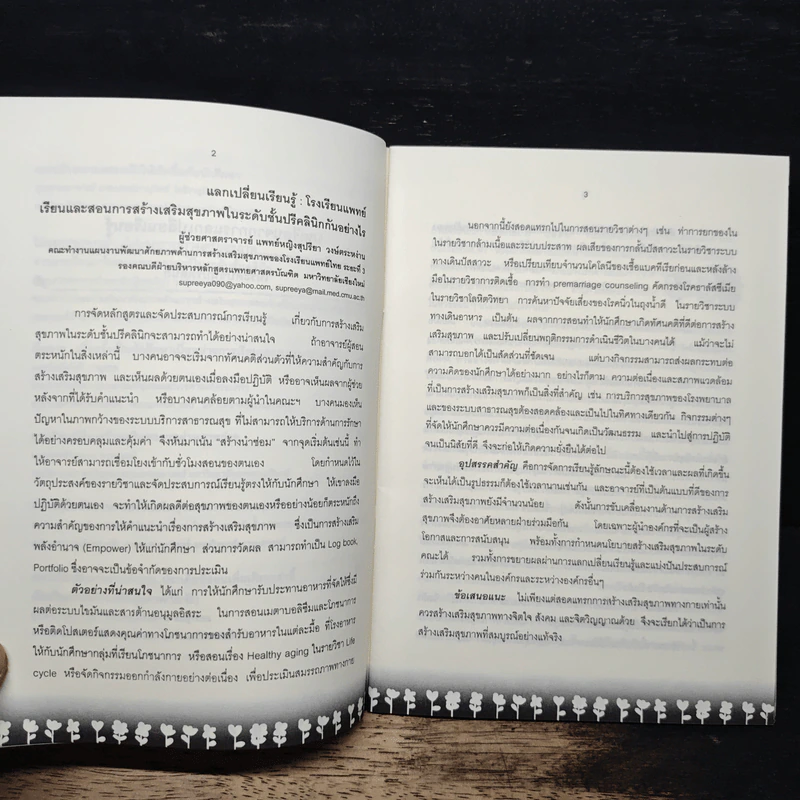 2
แลกเปลี่ยนเรียนรู้ : โรงเรียนแพทย์
เรียนและสอนการสร้างเสริมสุขภาพในระดับชั้นปรีคลินิกกันอย่างไร
ผู้ช่วยศาสตราจารย์ แพทย์หญิงสุปรียา วงษ์ตระหง่าน
คณะทำงานแผนงานพัฒนาศักยภาพด้านการสร้างเสริมสุขภาพของโรงเรียนแพทย์ไทย ระยะที่ 3
รองคณบดีฝ่ายบริหารหลักสูตรแพทยศาสตรบัณฑิต มหาวิทยาลัยเชียงใหม่
supreeya090@yahoo.com, supreeya@mail.med.cmu.ac.th
การจัดหลักสูตรและจัดประสบการณ์การเรียนรู้ เกี่ยวกับการสร้างเสริม
สุขภาพในระดับชั้นปรีคลินิกจะสามารถทำได้อย่างน่าสนใจ ถ้าอาจารย์ผู้สอน
ตระหนักในสิ่งเหล่านี้ บางคนอาจจะเริ่มจากทัศนคติส่วนตัวที่ให้ความสำคัญกับการ
สร้างเสริมสุขภาพ และเห็นผลด้วยตนเองเมื่อลงมือปฏิบัติ หรืออาจเห็นผลจากผู้ช่วย
หลังจากที่ได้รับคำแนะนำ หรือบางคนคล้อยตามผู้นำในคณะฯ บางคนมองเห็น
ปัญหาในภาพกว้างของระบบบริการสาธารณสุข ที่ไม่สามารถให้บริการด้านการรักษา
ได้อย่างครอบคลุมและคุ้มค่า จึงหันมาเน้น “สร้างนำซ่อม” จากจุดเริ่มต้นเช่นนี้ ทำ
ให้อาจารย์สามารถเชื่อมโยงเข้ากับชั่วโมงสอนของตนเอง โดยกำหนดไว้ใน
วัตถุประสงค์ของรายวิชาและจัดประสบการณ์เรียนรู้ตรงให้กับนักศึกษา ให้เขาลงมือ
ปฏิบัติด้วยตนเอง จะทำให้เกิดผลดีต่อสุขภาพของตนเองหรืออย่างน้อยก็ตระหนักถึง
ความสำคัญของการให้คำแนะนำเรื่องการสร้างเสริมสุขภาพ ซึ่งเป็นการสร้างเสริม
พลังอำนาจ (Empower) ให้แก่นักศึกษา ส่วนการวัดผล สามารถทำเป็น Log book,
Portfolio ซึ่งอาจจะเป็นข้อจำกัดของการประเมิน
ตัวอย่างที่น่าสนใจ ได้แก่ การให้นักศึกษารับประทานอาหารที่จัดให้ซึ่งมี
ผลต่อระบบไขมันและสารต้านอนุมูลอิสระ ในการสอนเมตาบอลิซึมและโภชนาการ
หรือติดโปสเตอร์แสดงคุณค่าทางโภชนาการของสำรับอาหารในแต่ละมื้อ ที่โรงอาหาร
ให้กับนักศึกษากลุ่มที่เรียนโภชนาการ หรือสอนเรื่อง Healthy aging ในรายวิชา Life
cycle หรือจัดกิจกรรมออกกำลังกายอย่างต่อเนื่อง เพื่อประเมินสมรรถภาพทางกาย
3
นอกจากนี้ยังสอดแทรกไปในการสอนรายวิชาต่างๆ เช่น ท่าการยกของใน
ในรายวิชากล้ามเนื้อและระบบประสาท ผลเสียของการกลั้นปัสสาวะในรายวิชาระบบ
ทางเดินปัสสาวะ หรือเปรียบเทียบจำนวนโคโลนีของเชื้อแบคทีเรียก่อนและหลังล้าง
มือในรายวิชาการติดเชื้อ การทำ premarriage counseling คัดกรองโรคธาลัสซีเมีย
ในรายวิชาโลหิตวิทยา การค้นหาปัจจัยเสี่ยงของโรคนิ่วในถุงน้ำดี ในรายวิชาระบบ
ทางเดินอาหาร เป็นต้น ผลจากการสอนทำให้นักศึกษาเกิดทัศนคติที่ดีต่อการสร้าง
เสริมสุขภาพ และปรับเปลี่ยนพฤติกรรมการดำเนินชีวิตในบางคนได้ แม้ว่าจะไม่
สามารถบอกได้เป็นสัดส่วนที่ชัดเจน แต่บางกิจกรรมสามารถส่งผลกระทบต่อ
ความคิดของนักศึกษาได้อย่างมาก อย่างไรก็ตาม ความต่อเนื่องและสภาพแวดล้อม
ที่เป็นการสร้างเสริมสุขภาพก็เป็นสิ่งที่สำคัญ เช่น การบริการสุขภาพของโรงพยาบาล
และของระบบสาธารณสุขต้องสอดคล้องและเป็นไปในทิศทางเดียวกัน กิจกรรมต่างๆ
ที่จัดให้นักศึกษาควรมีความต่อเนื่องกันจนเกิดเป็นวัฒนธรรม และนำไปสู่การปฏิบัติ
จนเป็นนิสัยที่ดี จึงจะก่อให้เกิดความยั่งยืนได้ต่อไป
อุปสรรคสำคัญ คือการจัดการเรียนรู้ลักษณะนี้ต้องใช้เวลาและผลที่เกิดขึ้น
จะเห็นได้เป็นรูปธรรมก็ต้องใช้เวลานานเช่นกัน และอาจารย์ที่เป็นต้นแบบที่ดีของการ
สร้างเสริมสุขภาพยังมีจำนวนน้อย ดังนั้นการขับเคลื่อนงานด้านการสร้างเสริม
สุขภาพจึงต้องอาศัยหลายฝ่ายร่วมมือกัน โดยเฉพาะผู้นำองค์กรที่จะเป็นผู้สร้าง
โอกาสและการสนับสนุน พร้อมทั้งการกำหนดนโยบายสร้างเสริมสุขภาพในระดับ
คณะได้ รวมทั้งการขยายผลผ่านการแลกเปลี่ยนเรียนรู้และแบ่งปันประสบการณ์
ร่วมกันระหว่างคนในองค์กรและระหว่างองค์กรอื่นๆ
ข้อเสนอแนะ ไม่เพียงแต่สอดแทรกการสร้างเสริมสุขภาพทางกายเท่านั้น
ควรสร้างเสริมสุขภาพทางจิตใจ สังคม และจิตวิญญาณด้วย จึงจะเรียกได้ว่าเป็นการ
สร้างเสริมสุขภาพที่สมบูรณ์อย่างแท้จริง